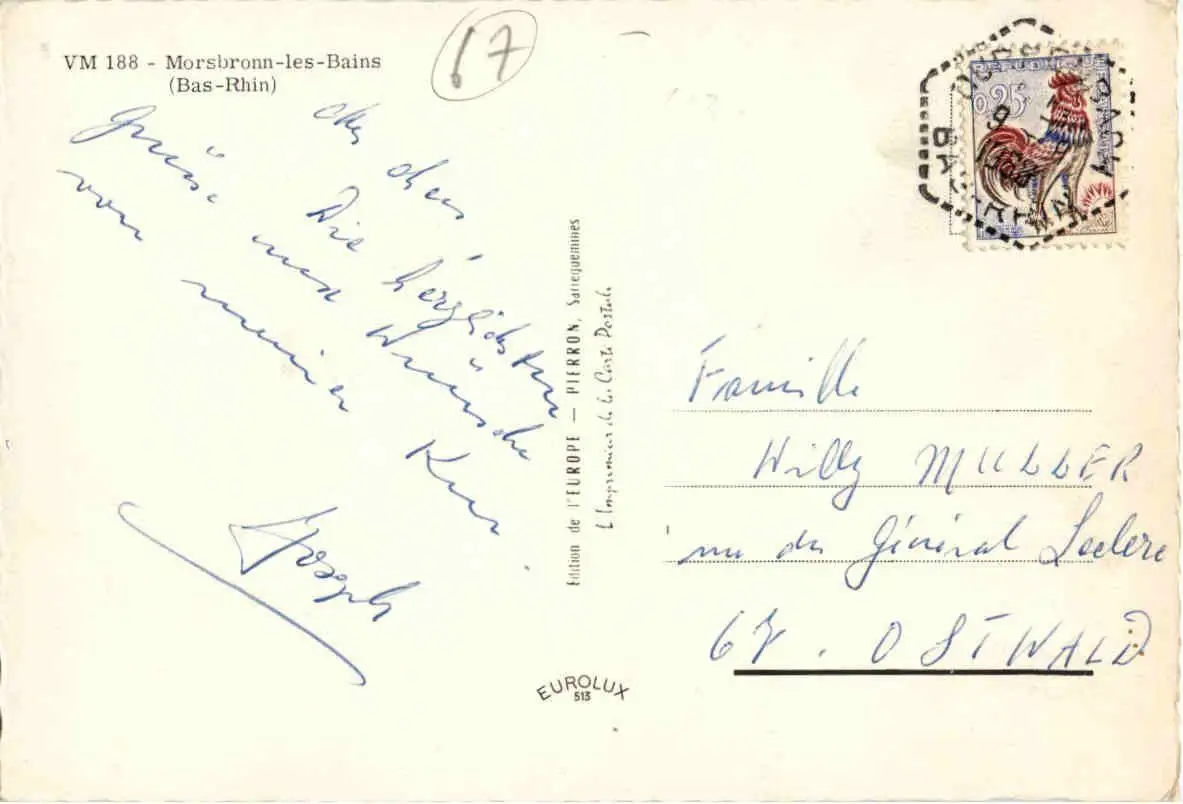 VM 188 - Morsbronn-les-Bains
(Bas-Rhin)
67
Die herzlichsten
Grüsse und Wünsche
von meiner Kur.
Joseph
Edition de l'EUROPE — PIERRON, Sarreguemines
L'Imprimeur de la Carte Postale
EUROLUX
513
REPUBLIQUE
0,25
BAS-RHIN
Famille
Willy MULLER
rue du Général Leclerc
67. OSTWALD